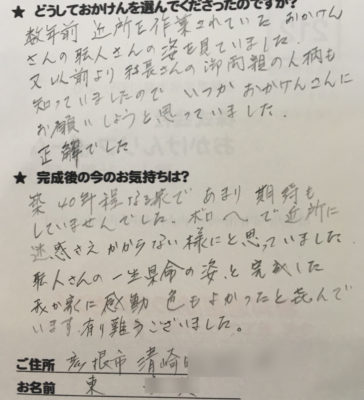 ★ どうしておかけんを選んでくださったのですか?
数年前 近所を作業されていた おかけん
さんの職人さんの姿を見ていました。
又以前より社長さんの御両親の人柄も
知っていましたので いつか おかけんさんに
お願いしようと思っていました。
正解でした
★ 完成後の今のお気持ちは?
築40年程なる家で あまり 期待も
していませんでした。ボロ で近所に
迷惑さえかからない様にと思っていました。
職人さんの一生県命の姿、と完成した
我が家に感動 色もよかったと喜んで
います。有り難うございました。
ご住所 彦根市 清崎
お名前 東